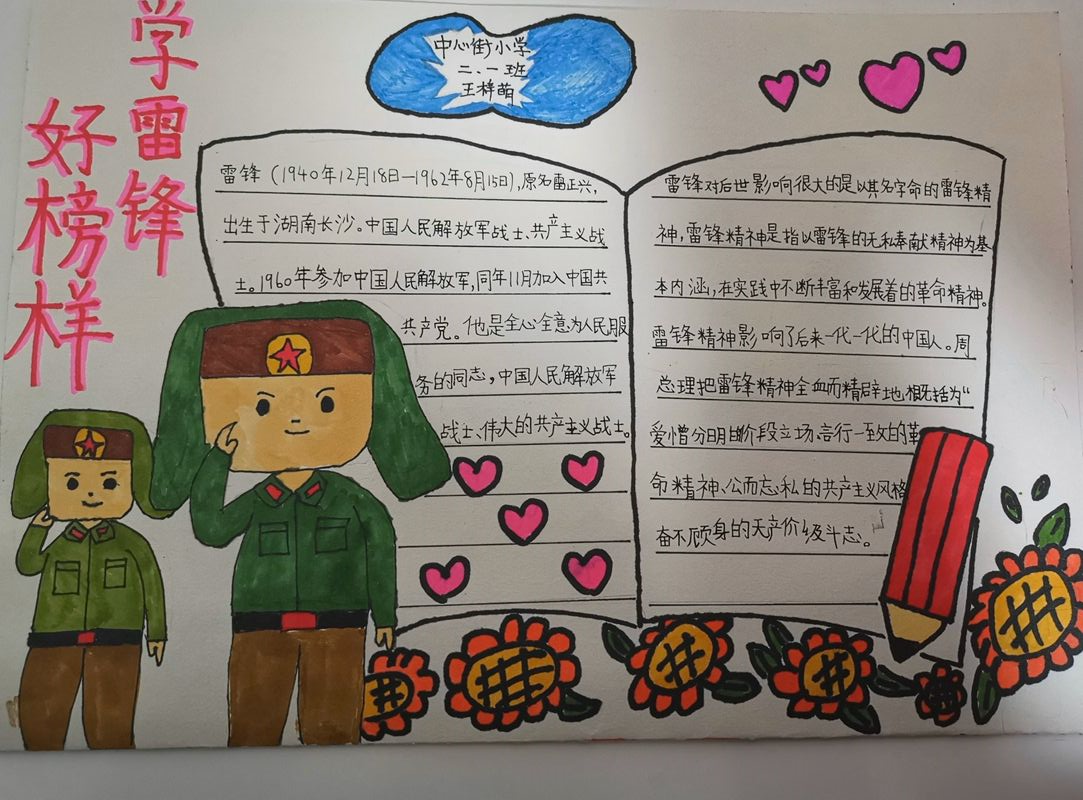 学雷锋
好榜样
中心街小学
二、一班
王梓萌
雷锋（1940年12月18日—1962年8月15日），原名雷正兴，
出生于湖南长沙。中国人民解放军战士、共产主义战
士。1960年参加中国人民解放军，同年11月加入中国共
共产党。他是全心全意为人民服
务的同志，中国人民解放军
战士、伟大的共产主义战士。
雷锋对后世影响很大的是以其名字命的雷锋精
神，雷锋精神是指以雷锋的无私奉献精神为基
本内涵，在实践中不断丰富和发展着的革命精神。
雷锋精神影响了后来一代一代的中国人。周
总理把雷锋精神全面而精辟地概括为“
爱憎分明的阶段立场、言行一致的革
命精神、公而忘私的共产主义风格
奋不顾身的无产阶级斗志。